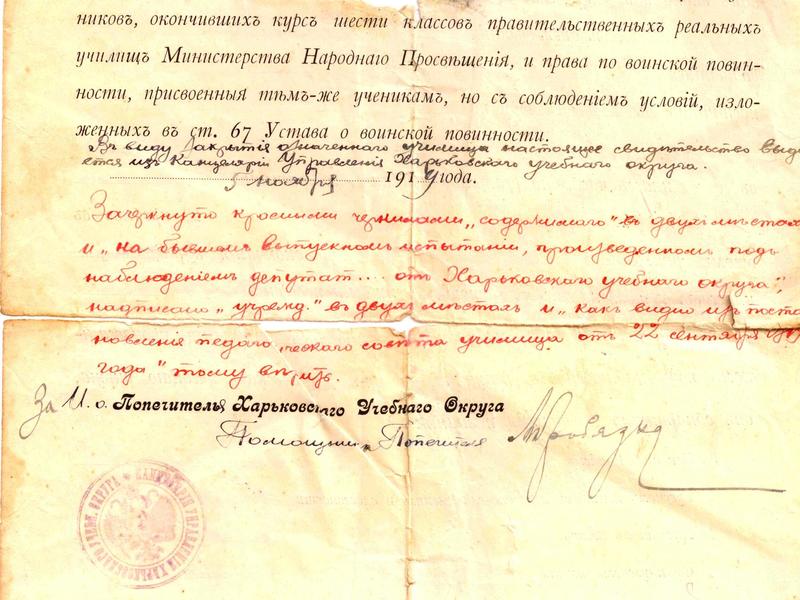 никовъ, окончившихъ курсъ шести классовъ правительственныхъ реальныхъ
училищъ Министерства Народнаго Просвѣщенія, и права по воинской повин-
ности, присвоенныя тѣмъ-же ученикамъ, но съ соблюденіемъ условій, изло-
женныхъ въ ст. 67 Устава о воинской повинности.
Въ виду закрытія означеннаго училища настоящее свидѣтельство выда-
ется изъ Канцеляріи Управленія Харьковскаго учебнаго округа.
5 ноября 1919 года.
Зачеркнуто красными чернилами „содержимаго" въ двухъ мѣстахъ
и „на бывшемъ выпускномъ испытаніи, произведенномъ подъ
наблюденіемъ депутат... отъ Харьковскаго учебнаго округа",
надписано „учрежд." въ двухъ мѣстахъ и „какъ видно изъ поста-
новленія педагогическаго совѣта училища отъ 22 сентября
года" тому вѣрить.
За И. о. Попечителя Харьковскаго Учебнаго Округа
Помощникъ Попечителя
КАНЦЕЛЯРІЯ УПРАВЛЕНІЯ ХАРЬКОВСКАГО УЧЕБН. ОКРУГА